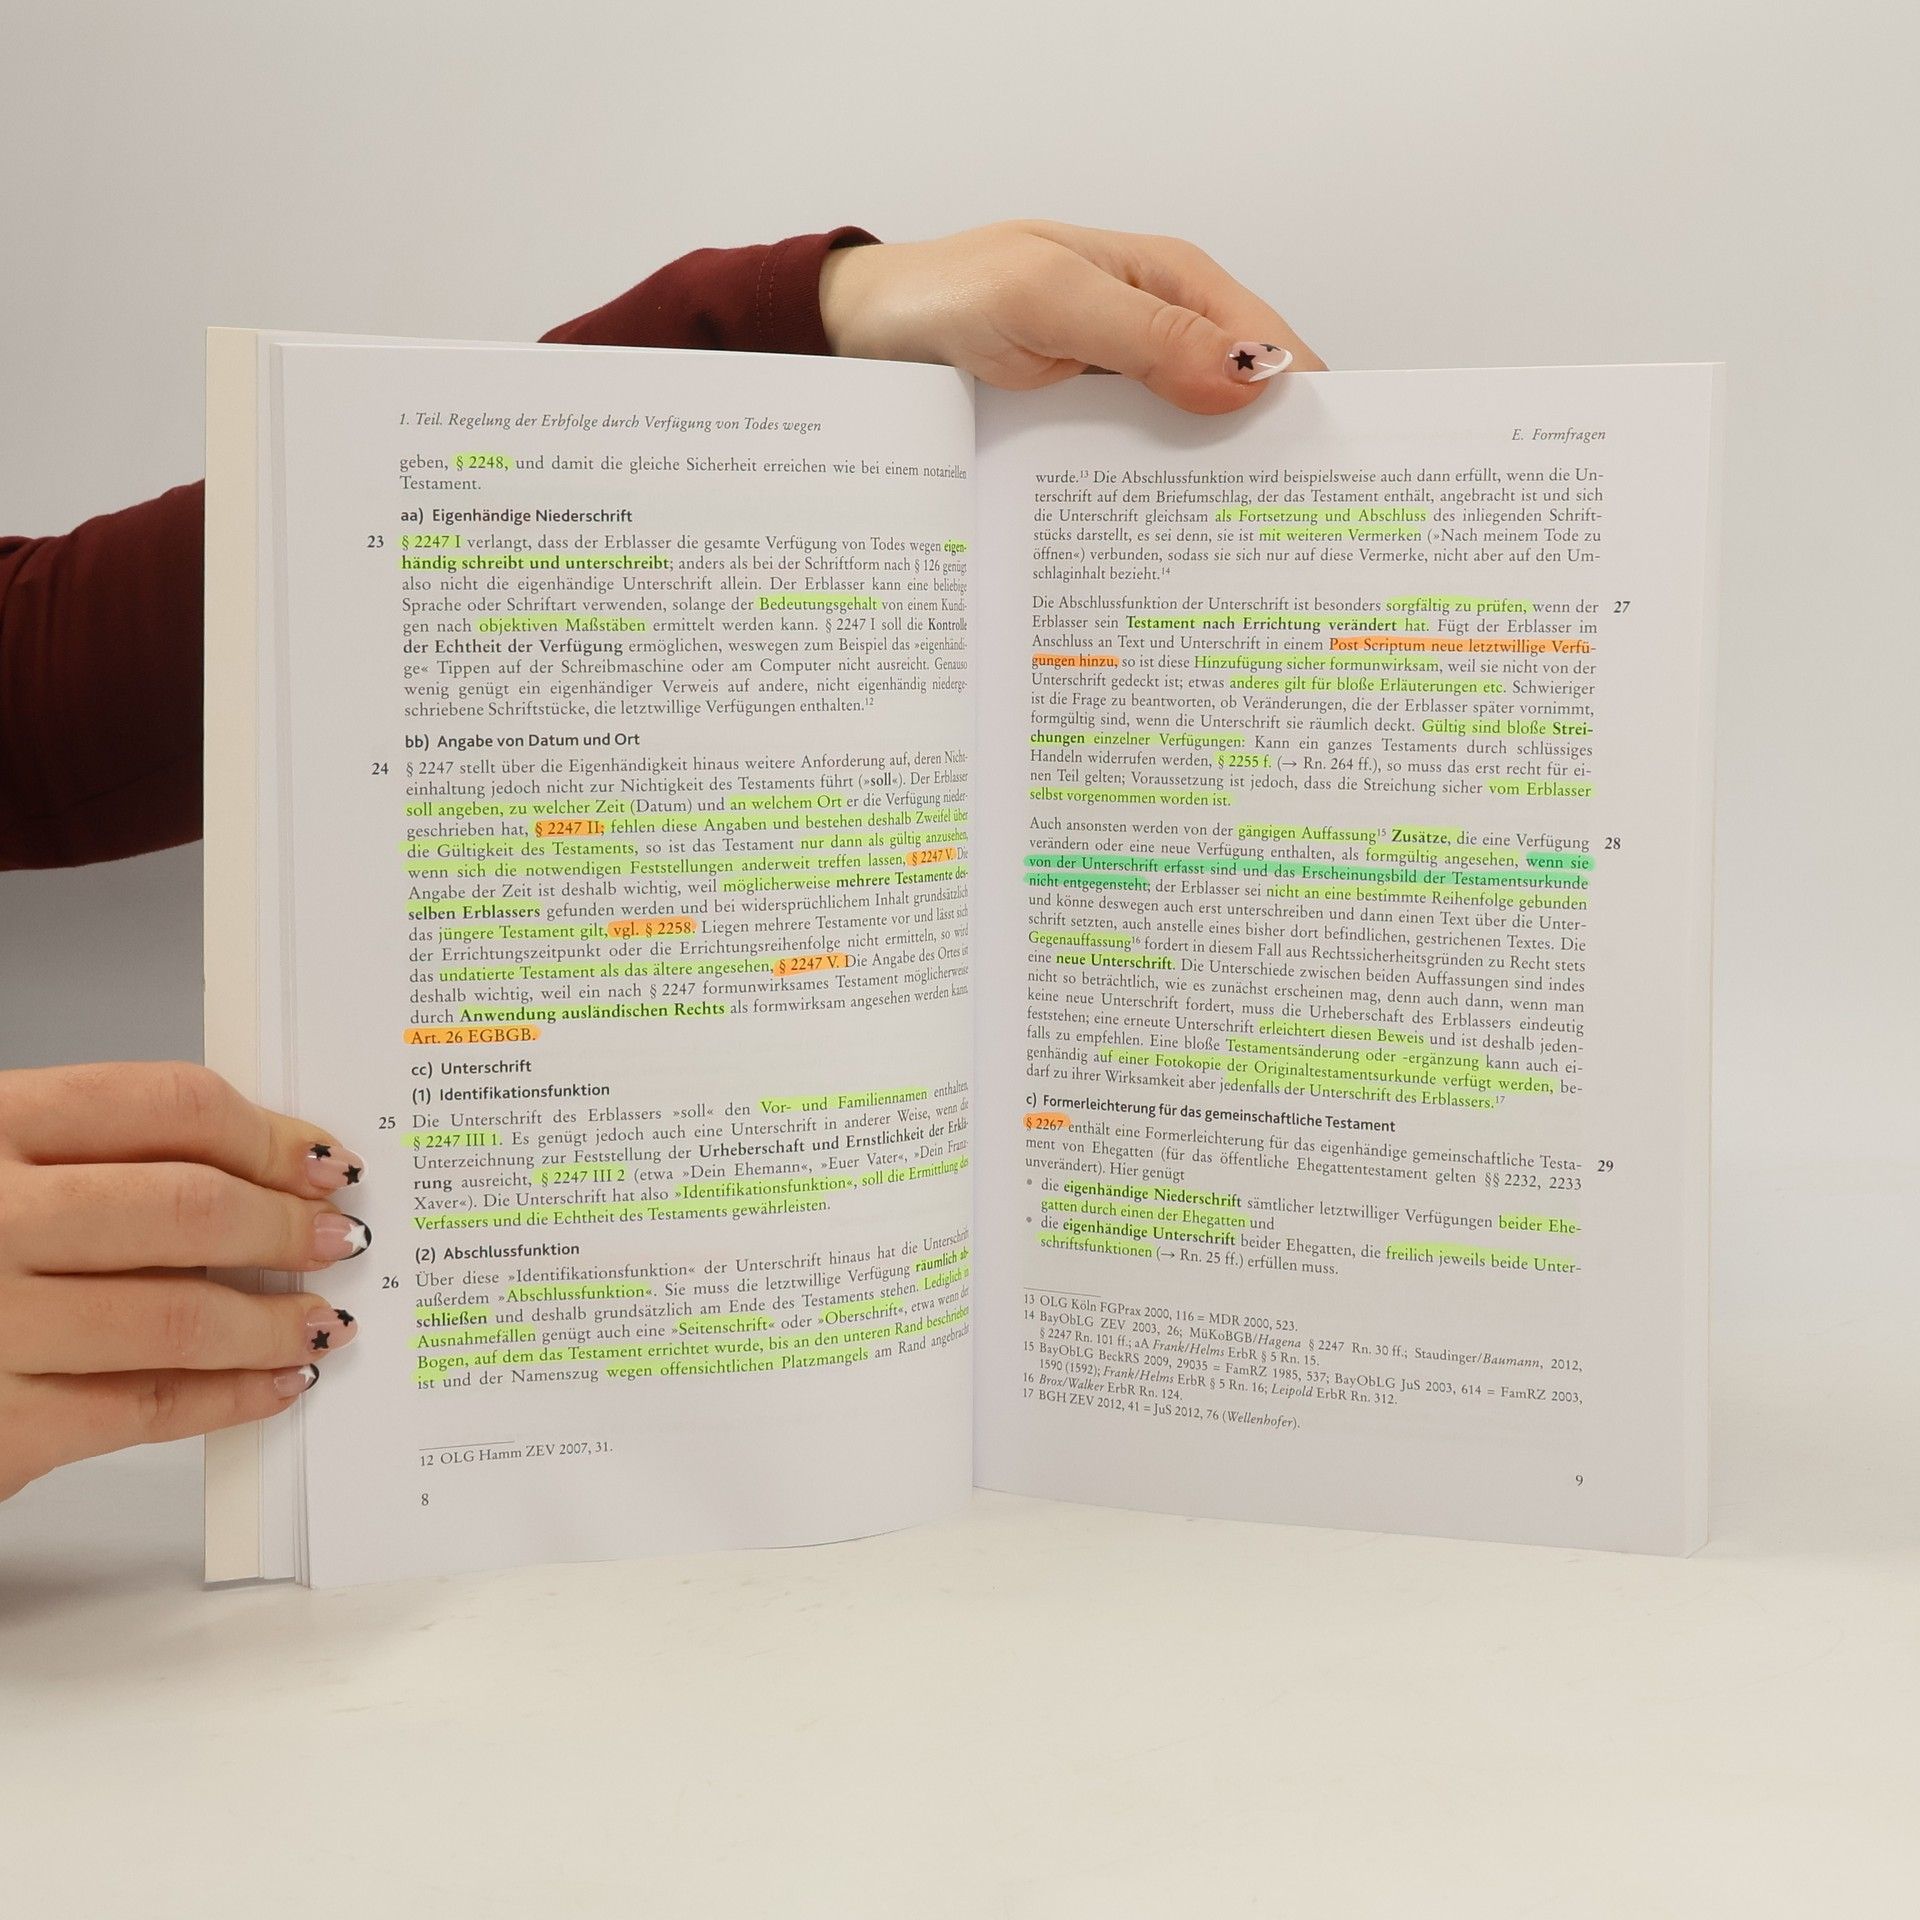 1. Teil. Regelung der Erbfolge durch Verfügung von Todes wegen
geben, § 2248, und damit die gleiche Sicherheit erreichen wie bei einem notariellen
Testament.
aa) Eigenhändige Niederschrift
23 § 2247 I verlangt, dass der Erblasser die gesamte Verfügung von Todes wegen eigen-
händig schreibt und unterschreibt; anders als bei der Schriftform nach § 126 genügt
also nicht die eigenhändige Unterschrift allein. Der Erblasser kann eine beliebige
Sprache oder Schriftart verwenden, solange der Bedeutungsgehalt von einem Kundi-
gen nach objektiven Maßstäben ermittelt werden kann. § 2247 I soll die Kontrolle
der Echtheit der Verfügung ermöglichen, weswegen zum Beispiel das »eigenhändi-
ge« Tippen auf der Schreibmaschine oder am Computer nicht ausreicht. Genauso
wenig genügt ein eigenhändiger Verweis auf andere, nicht eigenhändig niederge-
schriebene Schriftstücke, die letztwillige Verfügungen enthalten.12
bb) Angabe von Datum und Ort
24 § 2247 stellt über die Eigenhändigkeit hinaus weitere Anforderung auf, deren Nicht-
einhaltung jedoch nicht zur Nichtigkeit des Testaments führt (»soll«). Der Erblasser
soll angeben, zu welcher Zeit (Datum) und an welchem Ort er die Verfügung nieder-
geschrieben hat, § 2247 II; fehlen diese Angaben und bestehen deshalb Zweifel über
die Gültigkeit des Testaments, so ist das Testament nur dann als gültig anzusehen,
wenn sich die notwendigen Feststellungen anderweit treffen lassen, § 2247 V. Die
Angabe der Zeit ist deshalb wichtig, weil möglicherweise mehrere Testamente des-
selben Erblassers gefunden werden und bei widersprüchlichem Inhalt grundsätzlich
das jüngere Testament gilt, vgl. § 2258. Liegen mehrere Testamente vor und lässt sich
der Errichtungszeitpunkt oder die Errichtungsreihenfolge nicht ermitteln, so wird
das undatierte Testament als das ältere angesehen, § 2247 V. Die Angabe des Ortes ist
deshalb wichtig, weil ein nach § 2247 formunwirksames Testament möglicherweise
durch Anwendung ausländischen Rechts als formwirksam angesehen werden kann,
Art. 26 EGBGB.
cc) Unterschrift
(1) Identifikationsfunktion
25 Die Unterschrift des Erblassers »soll« den Vor- und Familiennamen enthalten,
§ 2247 III 1. Es genügt jedoch auch eine Unterschrift in anderer Weise, wenn die
Unterzeichnung zur Feststellung der Urheberschaft und Ernstlichkeit der Erklä-
rung ausreicht, § 2247 III 2 (etwa »Dein Ehemann«, »Euer Vater«, »Dein Franz-
Xaver«). Die Unterschrift hat also »Identifikationsfunktion«, soll die Ermittlung des
Verfassers und die Echtheit des Testaments gewährleisten.
(2) Abschlussfunktion
26 Über diese »Identifikationsfunktion« der Unterschrift hinaus hat die Unterschrift
außerdem »Abschlussfunktion«. Sie muss die letztwillige Verfügung räumlich ab-
schließen und deshalb grundsätzlich am Ende des Testaments stehen. Lediglich in
Ausnahmefällen genügt auch eine »Seitenschrift« oder »Oberschrift«, etwa wenn der
Bogen, auf dem das Testament errichtet wurde, bis an den unteren Rand beschrieben
ist und der Namenszug wegen offensichtlichen Platzmangels am Rand angebracht
12 OLG Hamm ZEV 2007, 31.
8
E. Formfragen
wurde.13 Die Abschlussfunktion wird beispielsweise auch dann erfüllt, wenn die Un-
terschrift auf dem Briefumschlag, der das Testament enthält, angebracht ist und sich
die Unterschrift gleichsam als Fortsetzung und Abschluss des inliegenden Schrift-
stücks darstellt, es sei denn, sie ist mit weiteren Vermerken (»Nach meinem Tode zu
öffnen«) verbunden, sodass sie sich nur auf diese Vermerke, nicht aber auf den Um-
schlaginhalt bezieht.14
Die Abschlussfunktion der Unterschrift ist besonders sorgfältig zu prüfen, wenn der 27
Erblasser sein Testament nach Errichtung verändert hat. Fügt der Erblasser im
Anschluss an Text und Unterschrift in einem Post Scriptum neue letztwillige Verfü-
gungen hinzu, so ist diese Hinzufügung sicher formunwirksam, weil sie nicht von der
Unterschrift gedeckt ist; etwas anderes gilt für bloße Erläuterungen etc. Schwieriger
ist die Frage zu beantworten, ob Veränderungen, die der Erblasser später vornimmt,
formgültig sind, wenn die Unterschrift sie räumlich deckt. Gültig sind bloße Strei-
chungen einzelner Verfügungen: Kann ein ganzes Testaments durch schlüssiges
Handeln widerrufen werden, § 2255 f. (→ Rn. 264 ff.), so muss das erst recht für ei-
nen Teil gelten; Voraussetzung ist jedoch, dass die Streichung sicher vom Erblasser
selbst vorgenommen worden ist.
Auch ansonsten werden von der gängigen Auffassung15 Zusätze, die eine Verfügung 28
verändern oder eine neue Verfügung enthalten, als formgültig angesehen, wenn sie
von der Unterschrift erfasst sind und das Erscheinungsbild der Testamentsurkunde
nicht entgegensteht; der Erblasser sei nicht an eine bestimmte Reihenfolge gebunden
und könne deswegen auch erst unterschreiben und dann einen Text über die Unter-
schrift setzten, auch anstelle eines bisher dort befindlichen, gestrichenen Textes. Die
Gegenauffassung16 fordert in diesem Fall aus Rechtssicherheitsgründen zu Recht stets
eine neue Unterschrift. Die Unterschiede zwischen beiden Auffassungen sind indes
nicht so beträchtlich, wie es zunächst erscheinen mag, denn auch dann, wenn man
keine neue Unterschrift fordert, muss die Urheberschaft des Erblassers eindeutig
feststehen; eine erneute Unterschrift erleichtert diesen Beweis und ist deshalb jeden-
falls zu empfehlen. Eine bloße Testamentsänderung oder -ergänzung kann auch ei-
genhändig auf einer Fotokopie der Originaltestamentsurkunde verfügt werden, be-
darf zu ihrer Wirksamkeit aber jedenfalls der Unterschrift des Erblassers.17
c) Formerleichterung für das gemeinschaftliche Testament
§ 2267 enthält eine Formerleichterung für das eigenhändige gemeinschaftliche Testa- 29
ment von Ehegatten (für das öffentliche Ehegattentestament gelten §§ 2232, 2233
unverändert). Hier genügt
• die eigenhändige Niederschrift sämtlicher letztwilliger Verfügungen beider Ehe-
gatten durch einen der Ehegatten und
• die eigenhändige Unterschrift beider Ehegatten, die freilich jeweils beide Unter-
schriftsfunktionen (→ Rn. 25 ff.) erfüllen muss.
13 OLG Köln FGPrax 2000, 116 = MDR 2000, 523.
14 BayObLG ZEV 2003, 26; MüKoBGB/Hagena § 2247 Rn. 30 ff.; Staudinger/Baumann, 2012,
§ 2247 Rn. 101 ff.; aA Frank/Helms ErbR § 5 Rn. 15.
15 BayObLG BeckRS 2009, 29035 = FamRZ 1985, 537; BayObLG JuS 2003, 614 = FamRZ 2003,
1590 (1592); Frank/Helms ErbR § 5 Rn. 16; Leipold ErbR Rn. 312.
16 Brox/Walker ErbR Rn. 124.
17 BGH ZEV 2012, 41 = JuS 2012, 76 (Wellenhofer).
9